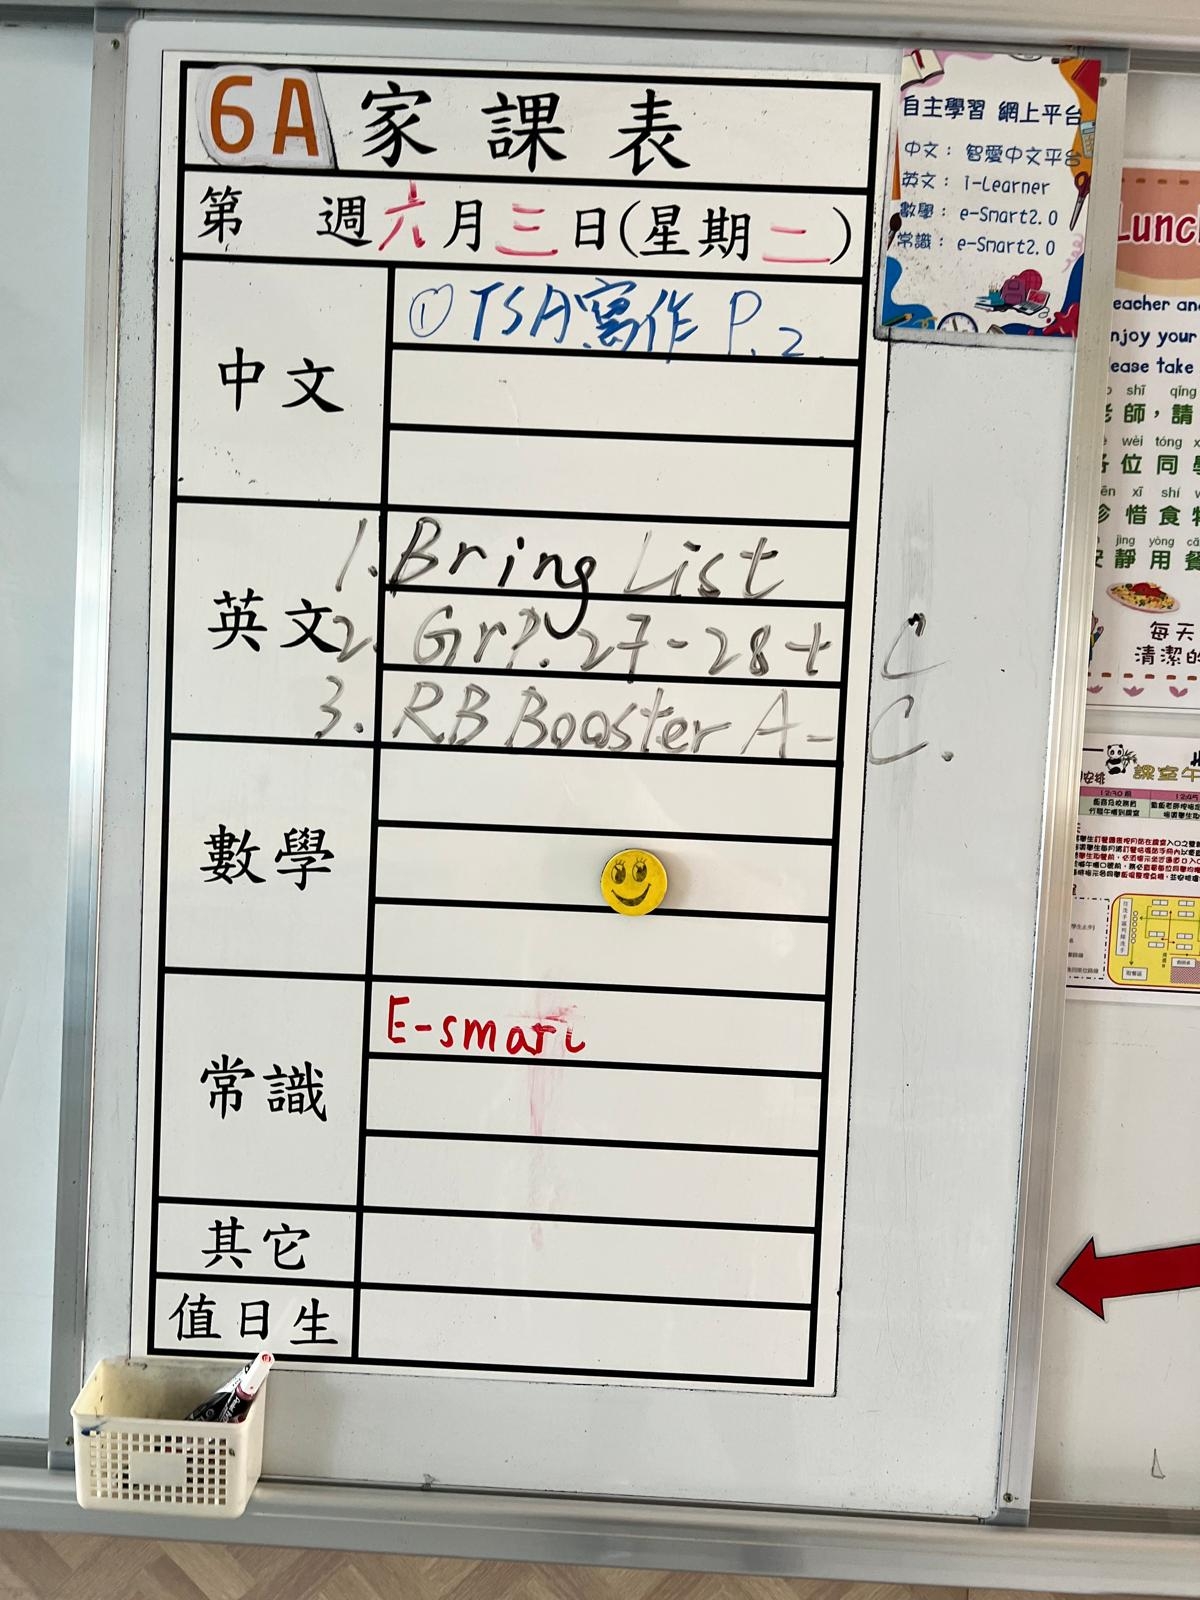 6A 家課表
第 週六月三日(星期二)
中文
①TSA寫作 P.2
英文
1. Bring List
2. Gr P. 27-28 + C
3. RB Booster A-C.
數學
常識
E-smart
其它
值日生
自主學習 網上平台
中文: 智愛中文平台
英文: i-Learner
數學: e-Smart2.0
常識: e-Smart2.0
Lunc
eacher an
njoy your
ease take
shī qǐng
老師,請
wèi tóng
各位同學
xī shí
珍惜食物
jìng yòng
安靜用餐
每天
清潔的
課室午
安排
12:30 12:45